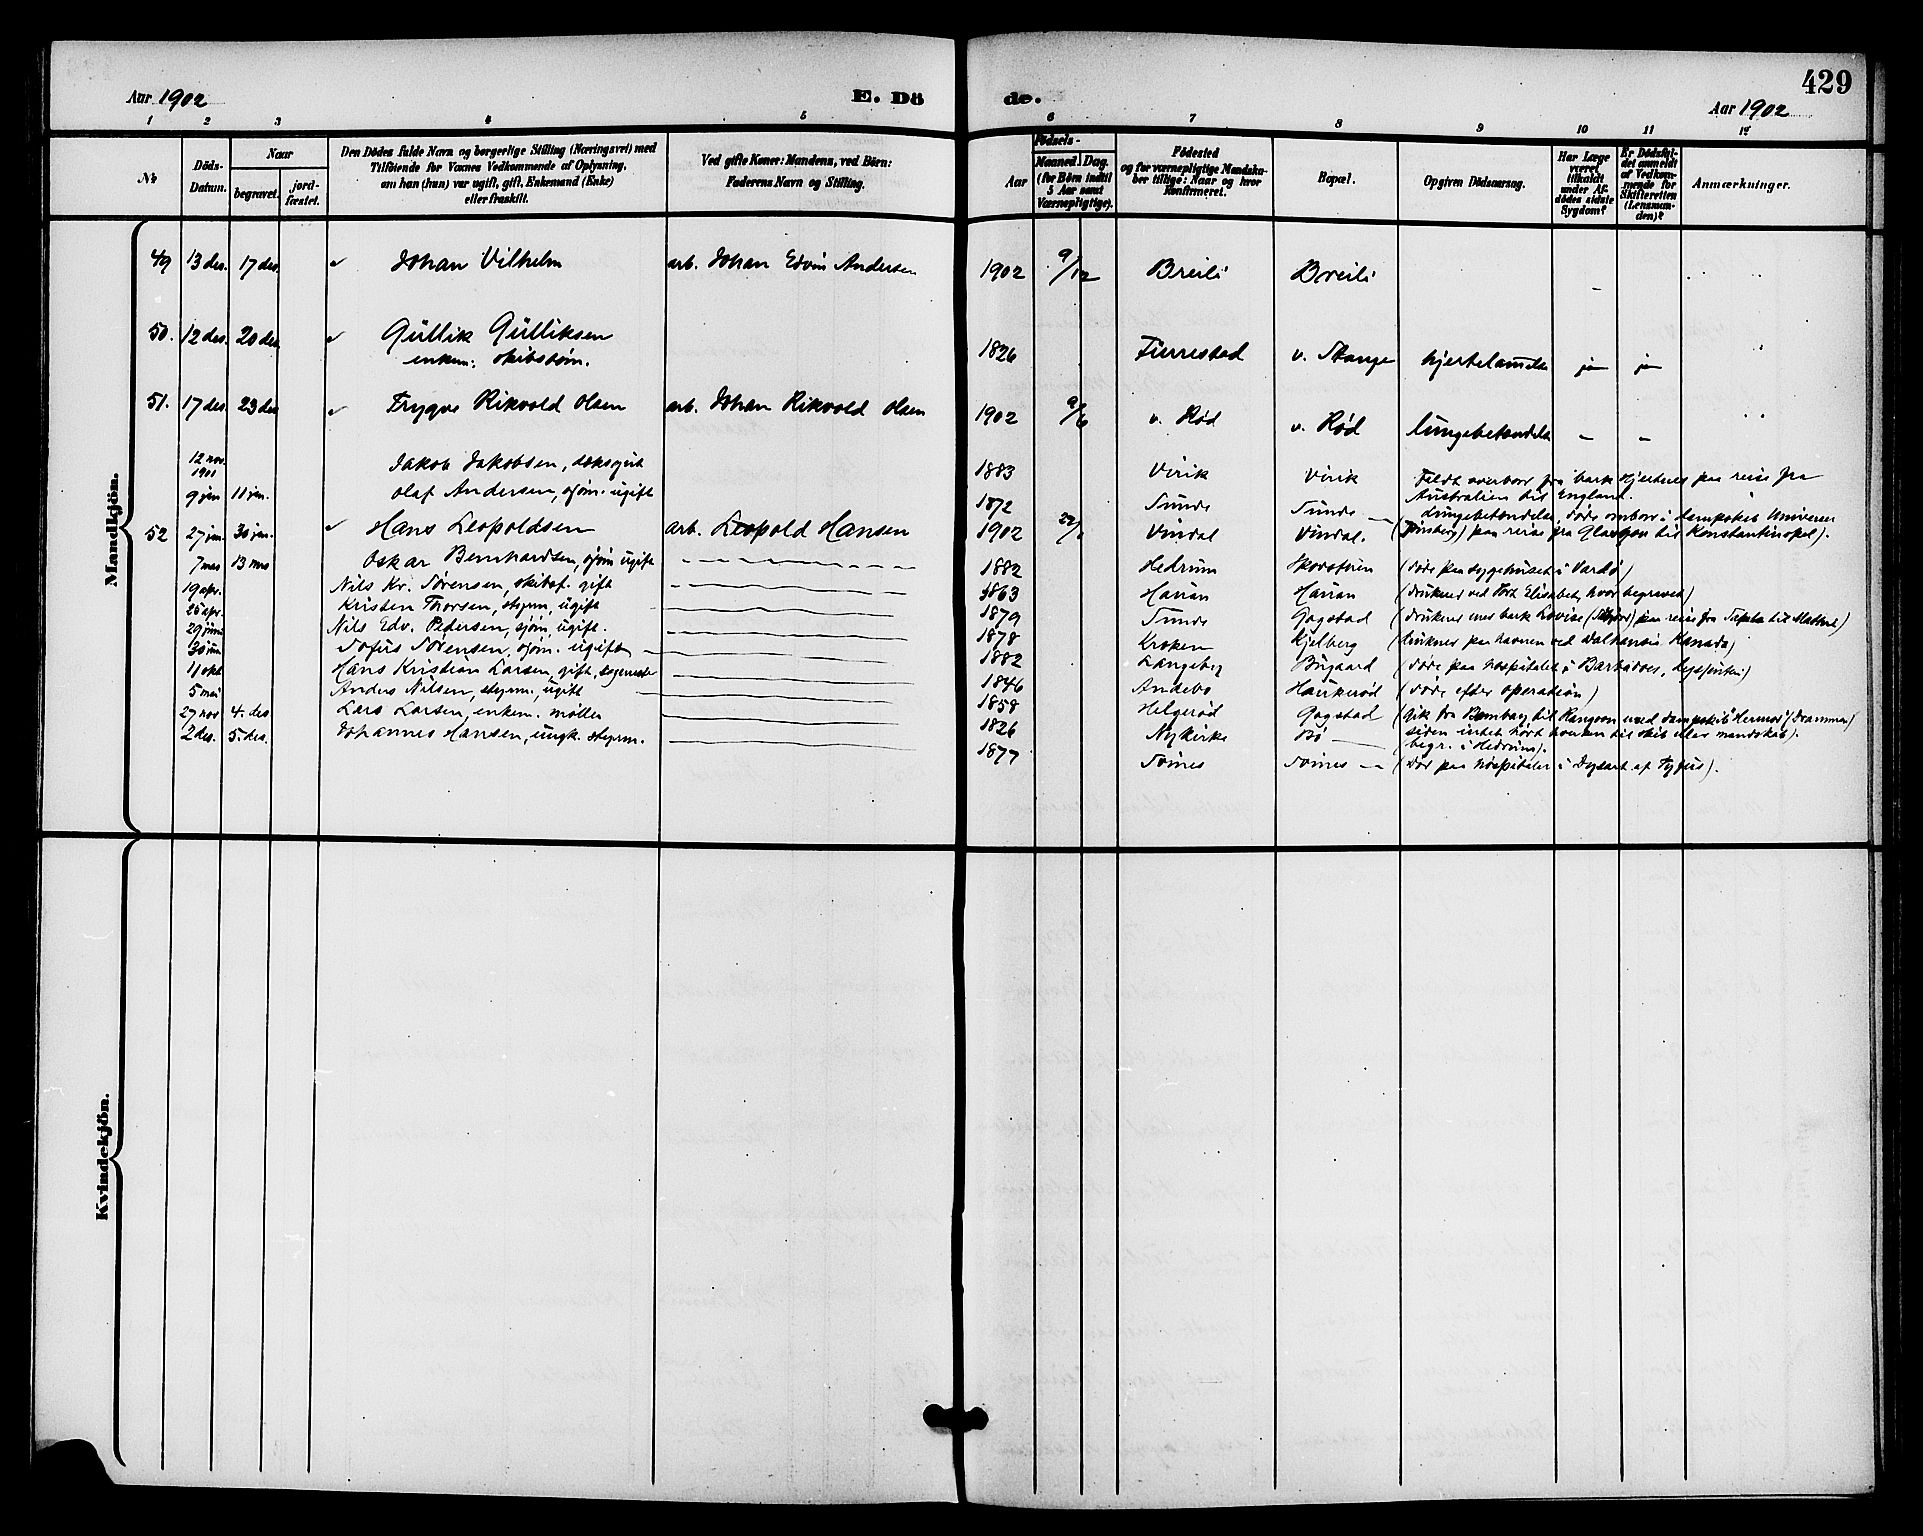 429
Aar 1902
E. Dö
de.
Aar 1902
1 2 3 4 5 6 7 8 9 10 11 12
No
Döds-Datum.
Naar
begravet.
jord-fæstet.
Den Dödes fulde Navn og borgerlige Stilling (Næringsvei) med
Tilföiende for Voxnes Vedkommende af Oplysning,
om han (hun) var ugift, gift, Enkemand (Enke)
eller fraskilt.
Ved gifte Koner: Mandens, ved Börn:
Faderens Navn og Stilling.
Födsels-
Aar
Maaned. Dag.
(for Börn indtil
5 Aar samt
Værnepligtige).
Födested
og for værnepligtige Mandska-
ber tillige: Naar og hvor
konfirmeret.
Bopæl.
Opgiven Dödsaarsag.
Har Læge
været
tilkaldt
under Af-
dödes sidste
Sygdom?
Er Dödsfal-
det anmeldt
af Vedkom-
mende for
Skifteretten
(Lensman-
den)?
Anmærkninger.
Mandkjön.
49 13 des. 17 des. Johan Vilhelm arb. Johan Edvin Andersen 1902 9/12 Breili Breili –
50. 12 des. 20 des. Güllik Gülliksen 1826 Fürrestad v. Stange hjertelammelse ja ja
enkem. skibstøm.
51. 17 des 23 des Trygve Rikvold Olsen arb. Johan Rikvold Olsen 1902 9/6 v. Rød v. Rød lungebetændelse – –
12 nov. 1901 Jakob Jakobsen, dæksgut 1883 Virik Virik Faldt overbord fra bark Hjertnes paa reise fra
Australien til England.
9 jan 11 jan. Olaf Andersen, sjøm. ugift 1872 Sunde Sunde – Lungebetændelse, døde ombord i dampskib Universe
(Tønsberg) paa reise fra Glasgow til Konstantinopel).
52 27 jan. 30 jan. Hans Leopoldsen arb. Leopold Hansen 1902 22/1 Vindal Vindal.
7 mars 13 mrs Oskar Bernhardsen, sjøm ugift 1882 Hedrum Skorstuen (døde paa sygehuset i Vardø)
19 apr. Nils Kr. Sørensen, skibsf. gift 1863 Haüan Haüan (druknet ved Port Elisabet, hvor begravet)
25 apr. Kristen Thorsen, styrm, ugift 1879 Sunde Gogstad
29 jüni Nils Edv. Pedersen, sjøm, ugift. 1878 Kroken Kjelberg (druknet paa havnen ved Dalhousie Kanada)
30 jün Sofus Sørensen, sjøm. ugift 1882 Langeby Bügaard (døde paa hospitalet i Barbadoes, dysenteri)
11 okt Hans Kristian Larsen, gift, 1846 Andebo Haukerød (døde efter operation)
5 mai Anders Nilsen, styrm., ugift 1858 Helgerød Gogstad (gik fra Bombay til Rangoon med dampskib "Hermod" (Drammen)
siden intet hørt hverken til skib eller mandskab).
27 nov 4. des Lars Larsen, enkem. møller 1826 Nykirke Bø – (begr. i Hedrum).
2 des. 5. des. Johannes Hansen, ungk. styrm. 1877 Soines Soines – (Død paa hospitalet i Dysart af Tyfus).
Kvindekjön.